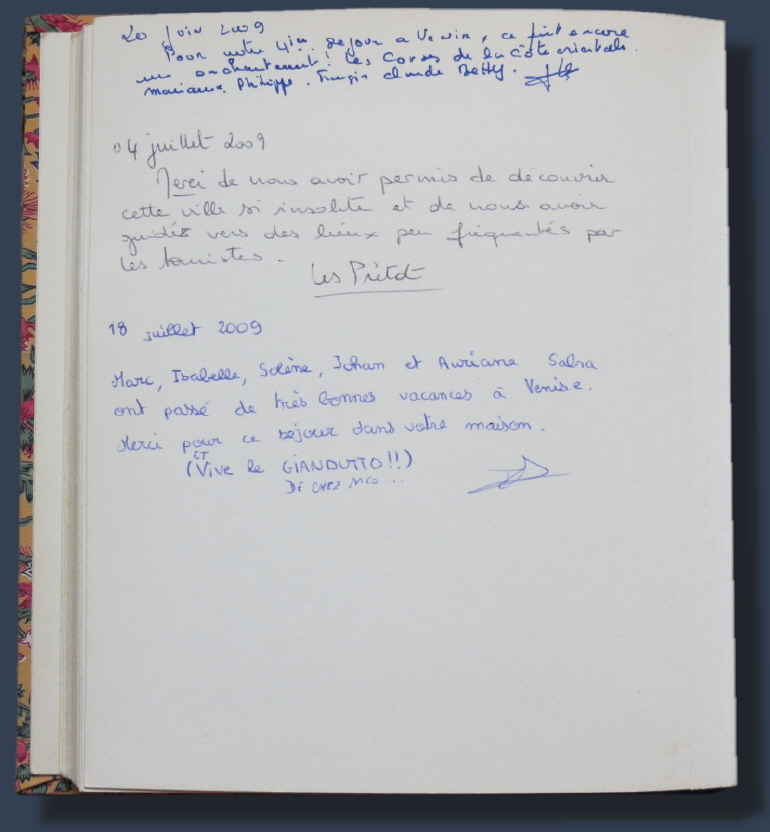 20 Juin 2009
Pour notre 4ième séjour a Venise, ce fut encore
un enchantement! Les Corses de la Côte orientale.
Marianne. Philippe. Claude Betty.
04 juillet 2009
Merci de nous avoir permis de découvrir
cette ville si insolite et de nous avoir
guidés vers des lieux peu fréquentés par
les touristes.
Les Prétot
18 juillet 2009
Marc, Isabelle, Solène, Johan et Auriane Salsa
ont passé de très bonnes vacances à Venise.
Merci pour ce séjour dans votre maison.
ET
(Vive le GIANDUTTO!!)
DE CHEZ NICO ..